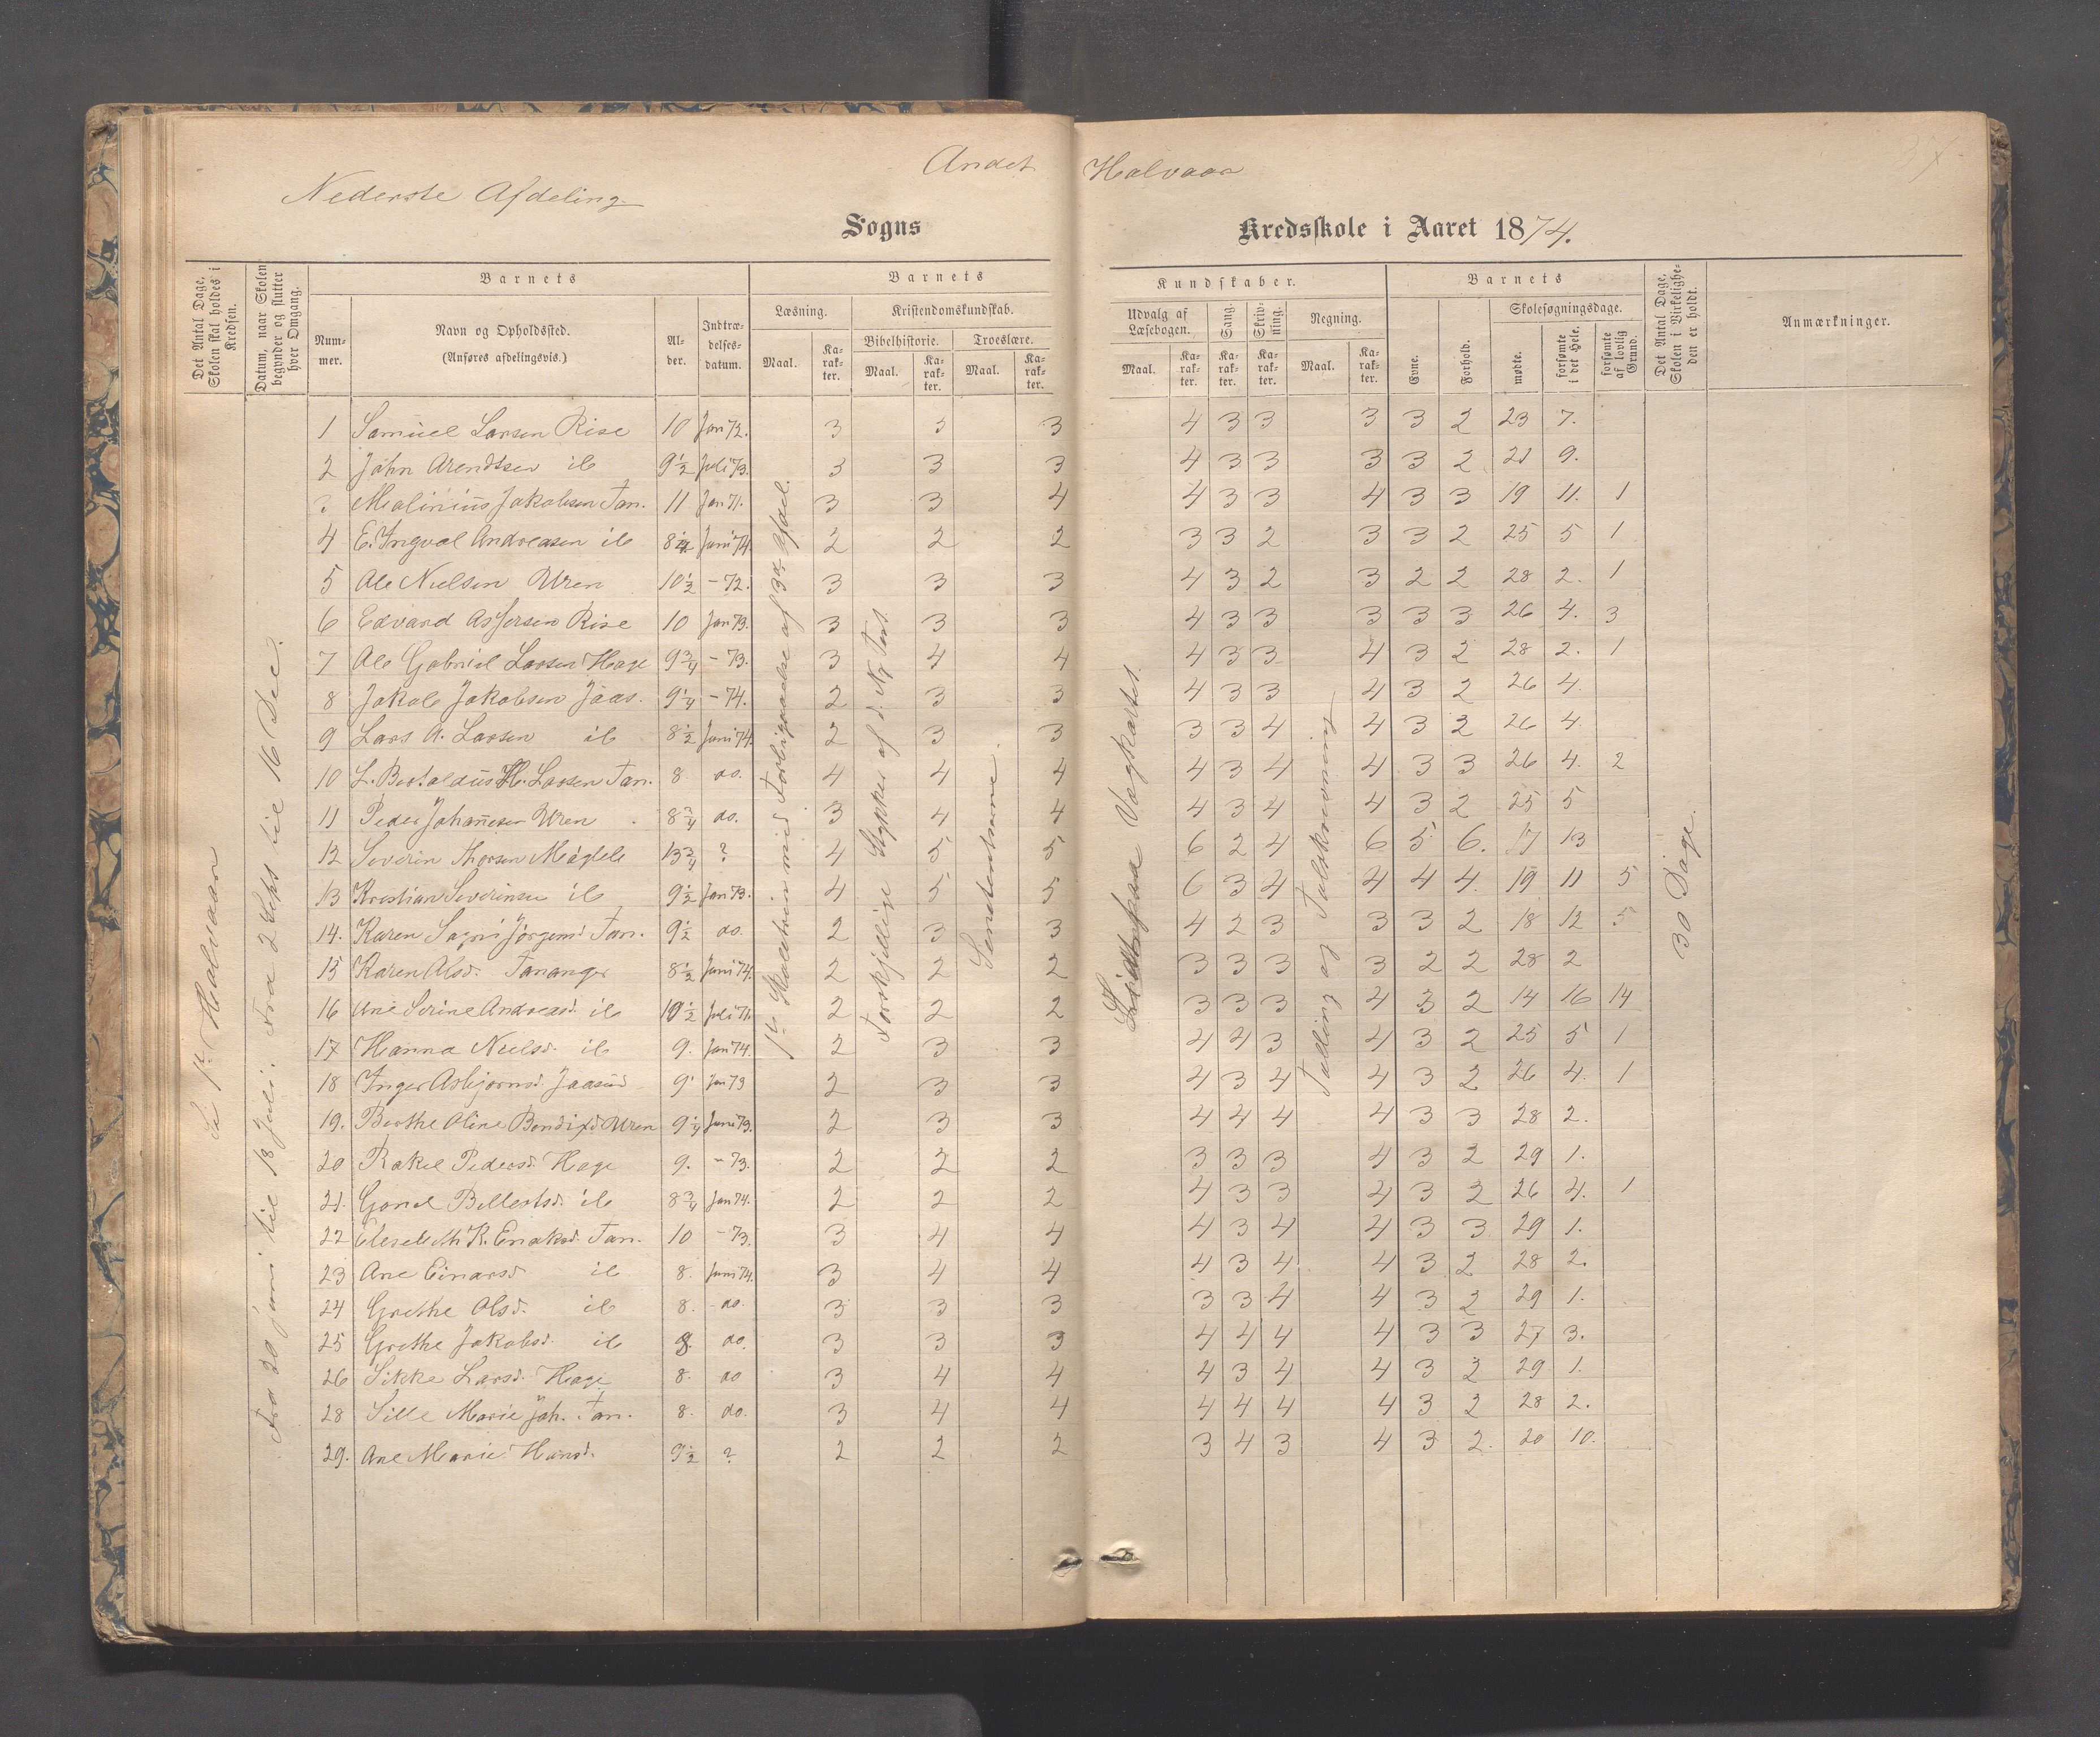 Andet Halvaar
Nederste Afdeling
Sogns Kredsskole i Aaret 1874.
Det Antal Dage, Skolen skal holdes i Kredsen.
Datum, naar Skolen begynder og slutter hver Omgang.
Barnets
Nummer.
Navn og Opholdssted.
(Anføres afdelingsvis.)
Alder.
Indtrædelsesdatum.
Barnets Kundskaber.
Læsning.
Maal.
Karakter.
Kristendomskundskab.
Bibelhistorie.
Maal.
Karakter.
Troeslære.
Maal.
Karakter.
Udvalg af Læsebogen.
Maal.
Karakter.
Sang.
Karakter.
Skrivning.
Karakter.
Regning.
Maal.
Karakter.
Barnets
Evne.
Forhold.
Skolesøgningsdage.
mødte.
forsømte i det Hele.
forsømte af lovlig Grund.
Det Antal Dage, Skolen i Virkeligheden er holdt.
Anmærkninger.
Se 1ste Halvaar
Fra 20 juni til 18 Juli. Fra 2 Sept til 16 Dec.
Forskjellige Stykker af d. Ny Test.
Tælling og Talskrivning
30 Dage.
1 Samuel Larsen Rise 10 Jan 72. 3 3 3 4 3 3 3 3 2 23 7.
2 John Arendtsen ib 9 1/2 Juli 73. 3 3 3 4 3 3 3 3 2 21 9.
3 Malinius Jakobsen Tan. 11 Jan 71. 3 3 4 4 3 3 4 3 3 19 11. 1
4 E. Ingval Andreasen ib 8 1/2 Juni 74. 2 2 2 3 3 2 3 3 2 25 5 1
5 Ole Nielsen Uren 10 1/2 - 72. 3 3 3 4 3 2 3 2 2 28 2. 1
6 Edvard Asjersen Rise 10 Jan 73. 3 3 3 4 3 3 3 3 3 26 4. 3
7 Ole Gabriel Larsen Hage 9 3/4 - 73. 3 4 4 4 3 3 4 3 2 28 2. 1
8 Jakob Jakobsen Jaas. 9 1/4 - 74. 2 3 3 4 3 3 4 3 2 26 4.
9 Lars A. Larsen ib 8 1/2 Juni 74. 2 3 3 3 3 4 4 3 2 26 4.
10 L. Bertaldus H. Larsen Tan. 8. do. 4 4 4 4 3 4 4 3 3 26 4. 2
11 Peder Johannesen Uren 8 3/4 do. 3 4 4 4 3 4 4 3 2 25 5
12 Severin Thorsen Meglele 13 3/4 ? 4 5 5 6 2 4 6 5 6. 17 13
13 Kristian Severinsen ib 9 1/2 Jan 73. 4 5 5 6 3 4 4 4 4. 19 11 5
14. Karen Sagri Jörgens. Tan. 9 1/2 do. 2 3 3 4 2 3 3 3 2 18 12 5
15 Karen Olsd. Tananger 8 1/2 Juni 74. 2 2 2 3 3 3 3 2 2 28 2
16 Ane Serine Andreasd. ib 10 1/2 Juli 71. 2 2 2 3 3 3 4 3 2 14 16 14
17 Hanna Nielsd. ib 9. Jan 74. 2 3 3 4 4 3 4 3 2 25 5 1
18 Inger Asbjornsd. Jaasund 9. Jan 73 2 3 3 4 3 4 4 3 2 26 4. 1
19. Berthe Oline Bendixd Uren 9 1/4 Juni 73. 2 3 3 4 4 4 4 3 3 28 2.
20 Rakel Pedersd. Hage 9. - 73. 2 2 2 3 3 3 4 3 2 29 1.
21. Gonil Billertsd. ib 8 3/4 Jan 74. 2 2 2 4 3 3 4 3 2 26 4. 1
22 Elesebeth R. Enoksd. Tan. 10 - 73. 3 4 4 4 3 4 4 3 3 29 1.
23 Ane Einarsd ib 8. Juni 74. 3 4 4 4 3 4 4 3 2 28 2.
24 Grethe Olsd. ib 8. do. 3 3 3 3 3 4 4 3 2 29 1.
25 Grethe Jakobsd. ib 8. do. 3 3 3 4 4 4 4 3 3 27 3.
26 Sikke Larsd. Hage 8. do 3 4 4 4 3 4 4 3 2 29 1.
28 Sille Marie Joh. Tan. 8. do. 3 4 4 4 4 4 4 3 2 28 2.
29. Ane Marie Hansd. 9 1/2 ? 2 2 2 3 4 3 4 3 2. 20 10.